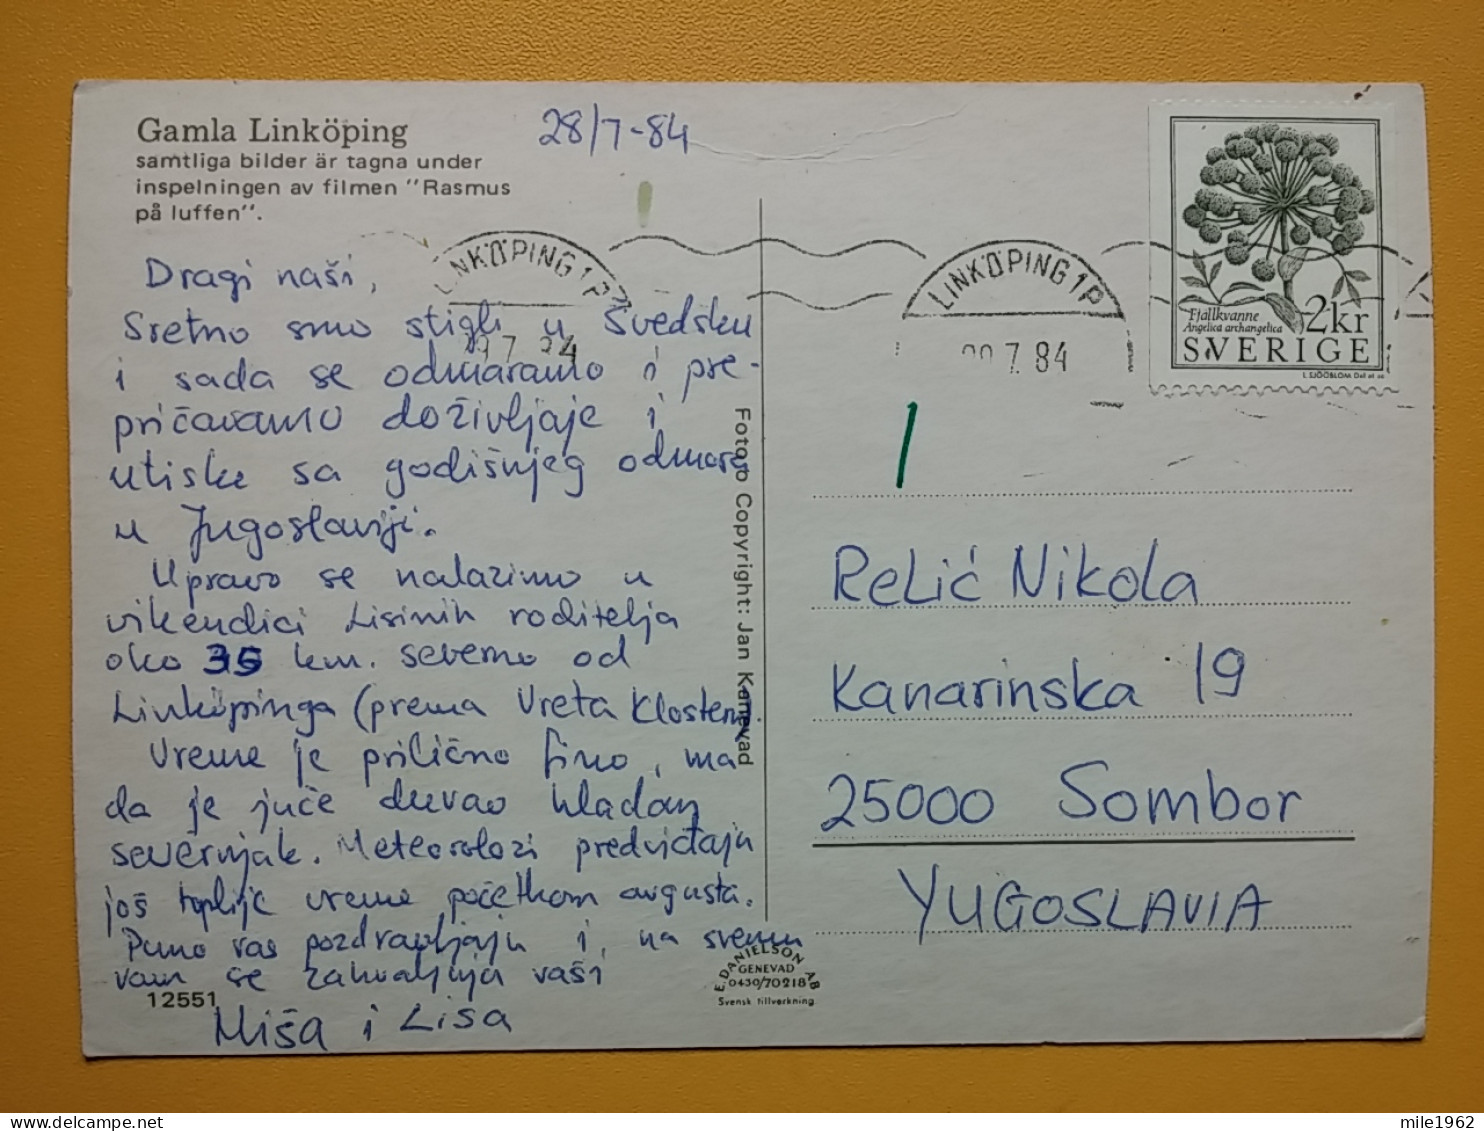 Gamla Linköping
samtliga bilder är tagna under
inspelningen av filmen "Rasmus
på luffen".
28/7-84
Dragi naši,
Sretno smo stigli u Švedsku
i sada se odmaramo i pre-
pričavamo doživljaje i
utiske sa godišnjeg odmora
u Jugoslaviji.
Upravo se nalazimo u
vikendici Lisinih roditelja
oko 35 km. severno od
Linköpinga (prema Vreta Kloster).
Vreme je prilično fino, ma
da je juče duvao hladan
severnjak. Meteorolozi predviđaju
još toplije vreme početkom avgusta.
Puno vas pozdravljaju i, na svemu
vam se zahvaljuju vaši
Miša i Lisa
12551
Foto o Copyright: Jan Kanevad
E. DANIELSON AB
GENEVAD
0430/70218
Svensk tillverkning
LINKÖPING 1 P
7 84
LINKÖPING 1 P
7. 84
Fjällkvanne
Angelica archangelica
2kr
SVERIGE
L. SJÖÖBLOM Del et sc
Relić Nikola
Kanarinska 19
25000 Sombor
YUGOSLAVIA
mile1962